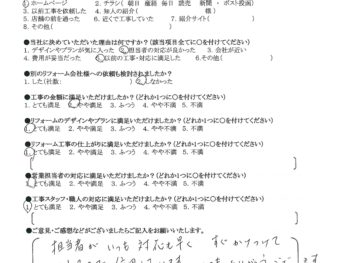 1. ホームページ 2. チラシ( 朝日 産経 毎日 読売 新聞 ・ ポスト投函)
3. 以前工事を依頼した 4. 知人の紹介( 様)
5. 店舗の前を通った 6. 近くで工事していた 7. 紹介サイト( )
8. その他( )
●当社に決めていただいた理由は何ですか?(該当項目全てに○を付けてください)
1. デザインやプランが気に入った 2. 担当者の対応が良かった 3. 会社が近い
4. 費用が妥当だった 5. 以前の工事・対応に満足した 6. その他( )
●別のリフォーム会社様への依頼も検討されましたか?
1. した(社数: ) 2. しなかった
●工事の金額に満足いただけましたか?(どれか1つに○を付けてください)
1. とても満足 2. やや満足 3. ふつう 4. やや不満 5. 不満
●リフォームのデザインやプランに満足いただけましたか?(どれか1つに○を付けてください)
1. とても満足 2. やや満足 3. ふつう 4. やや不満 5. 不満
●リフォーム工事の仕上がりに満足いただけましたか?(どれか1つに○を付けてください)
1. とても満足 2. やや満足 3. ふつう 4. やや不満 5. 不満
●営業担当者の対応に満足いただけましたか?(どれか1つに○を付けてください)
1. とても満足 2. やや満足 3. ふつう 4. やや不満 5. 不満
●工事スタッフ・職人の対応に満足いただけましたか?(どれか1つに○を付けてください)
1. とても満足 2. やや満足 3. ふつう 4. やや不満 5. 不満
●ご意見・ご感想などがございましたらご記入をお願いいたします。
担当者が いつも 対応も早く すぐ かけつけて